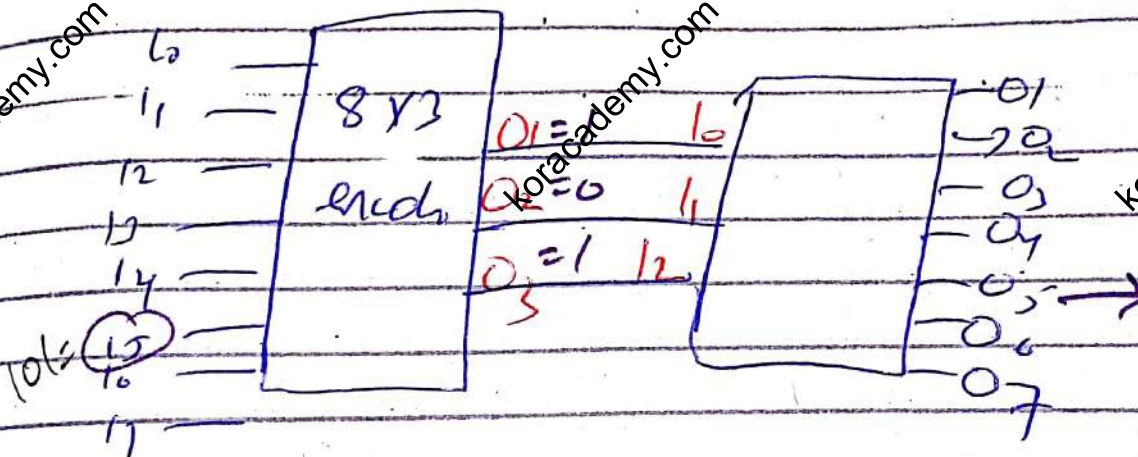 emy.com
koracademy.com
I0
I1
I2
I3
I4
101= I5
I6
I7
8 x 3
encdr
O1=
O2=0
O3=1
I0
I1
I2
O1
→O2
O3
O4
O5→
O6
O7